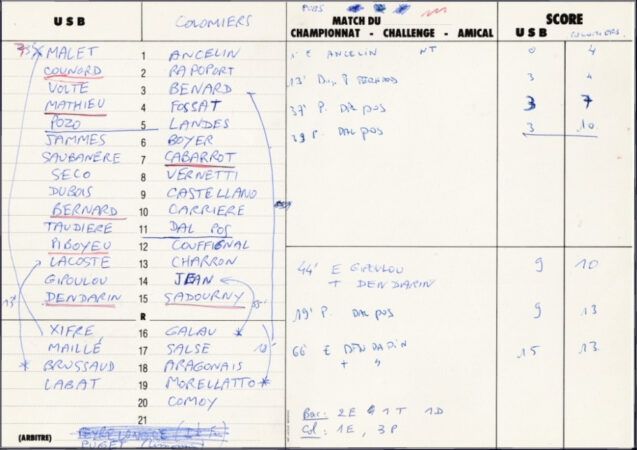 POOS
U S B COLOMIERS MATCH DU SCORE
CHAMPIONNAT - CHALLENGE - AMICAL U S B COLOMIERS
MALET 1 ANCELIN 1' E ANCELIN NT 0 4
COUNORD 2 RAPOPORT 13' 3 4
VOLTE 3 BENARD
MATHIEU 4 FOSSAT 37' P. DAL POS 3 7
POZO 5 LANDES 39 P. DAL POS 3 10
JAMMES 6 BOYER
SAUBANERE 7 CABARROT
SECO 8 VERNETTI
DUBOIS 9 CASTELLANO
BERNARD 10 CARRIERE
TAUDIERE 11 DAL POS
PIBOYEU 12 COUFFIGNAL
LACOSTE 13 CHARRON 44' E GIPOULOU 9 10
GIPOULOU 14 JEAN + DENDARIN
DENDARIN 15 SADOURNY 49' P. DAL POS 9 13
R
XIFRE 16 GALAU
MAILLÉ 17 SALSE 66' E DENDARIN 15 13
BRUSSAUD 18 ARAGONAIS + "
LABAT 19 MORELLATTO
20 COMOY
21 Bar: 2E 1T 1D
(ARBITRE) Col: 1E, 3P